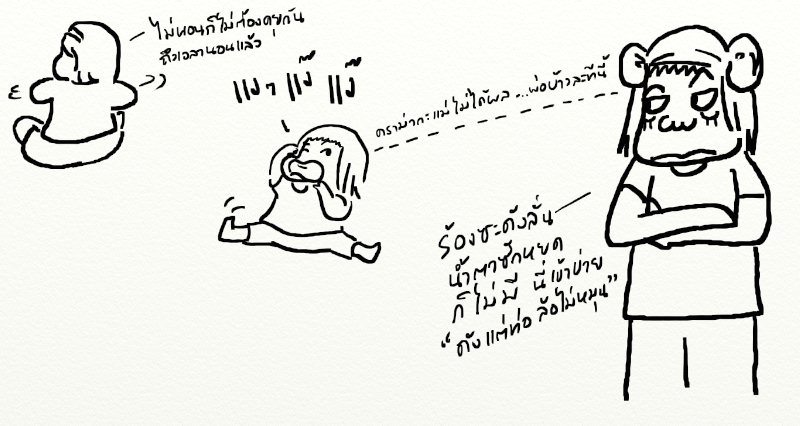 ไม่นอนก็ไม่ต้องคุยกัน
ถึงเวลานอนแล้ว
แงๆ แง๊ แง๊
ดราม่ากะแม่ไม่ได้ผล...พ่อบ้างละทีนี้
ร้องซะดังลั่น
น้ำตาซักหยด
ก็ไม่มี นี่เข้าข่าย
"ดังแต่ท่อ ล้อไม่หมุน"